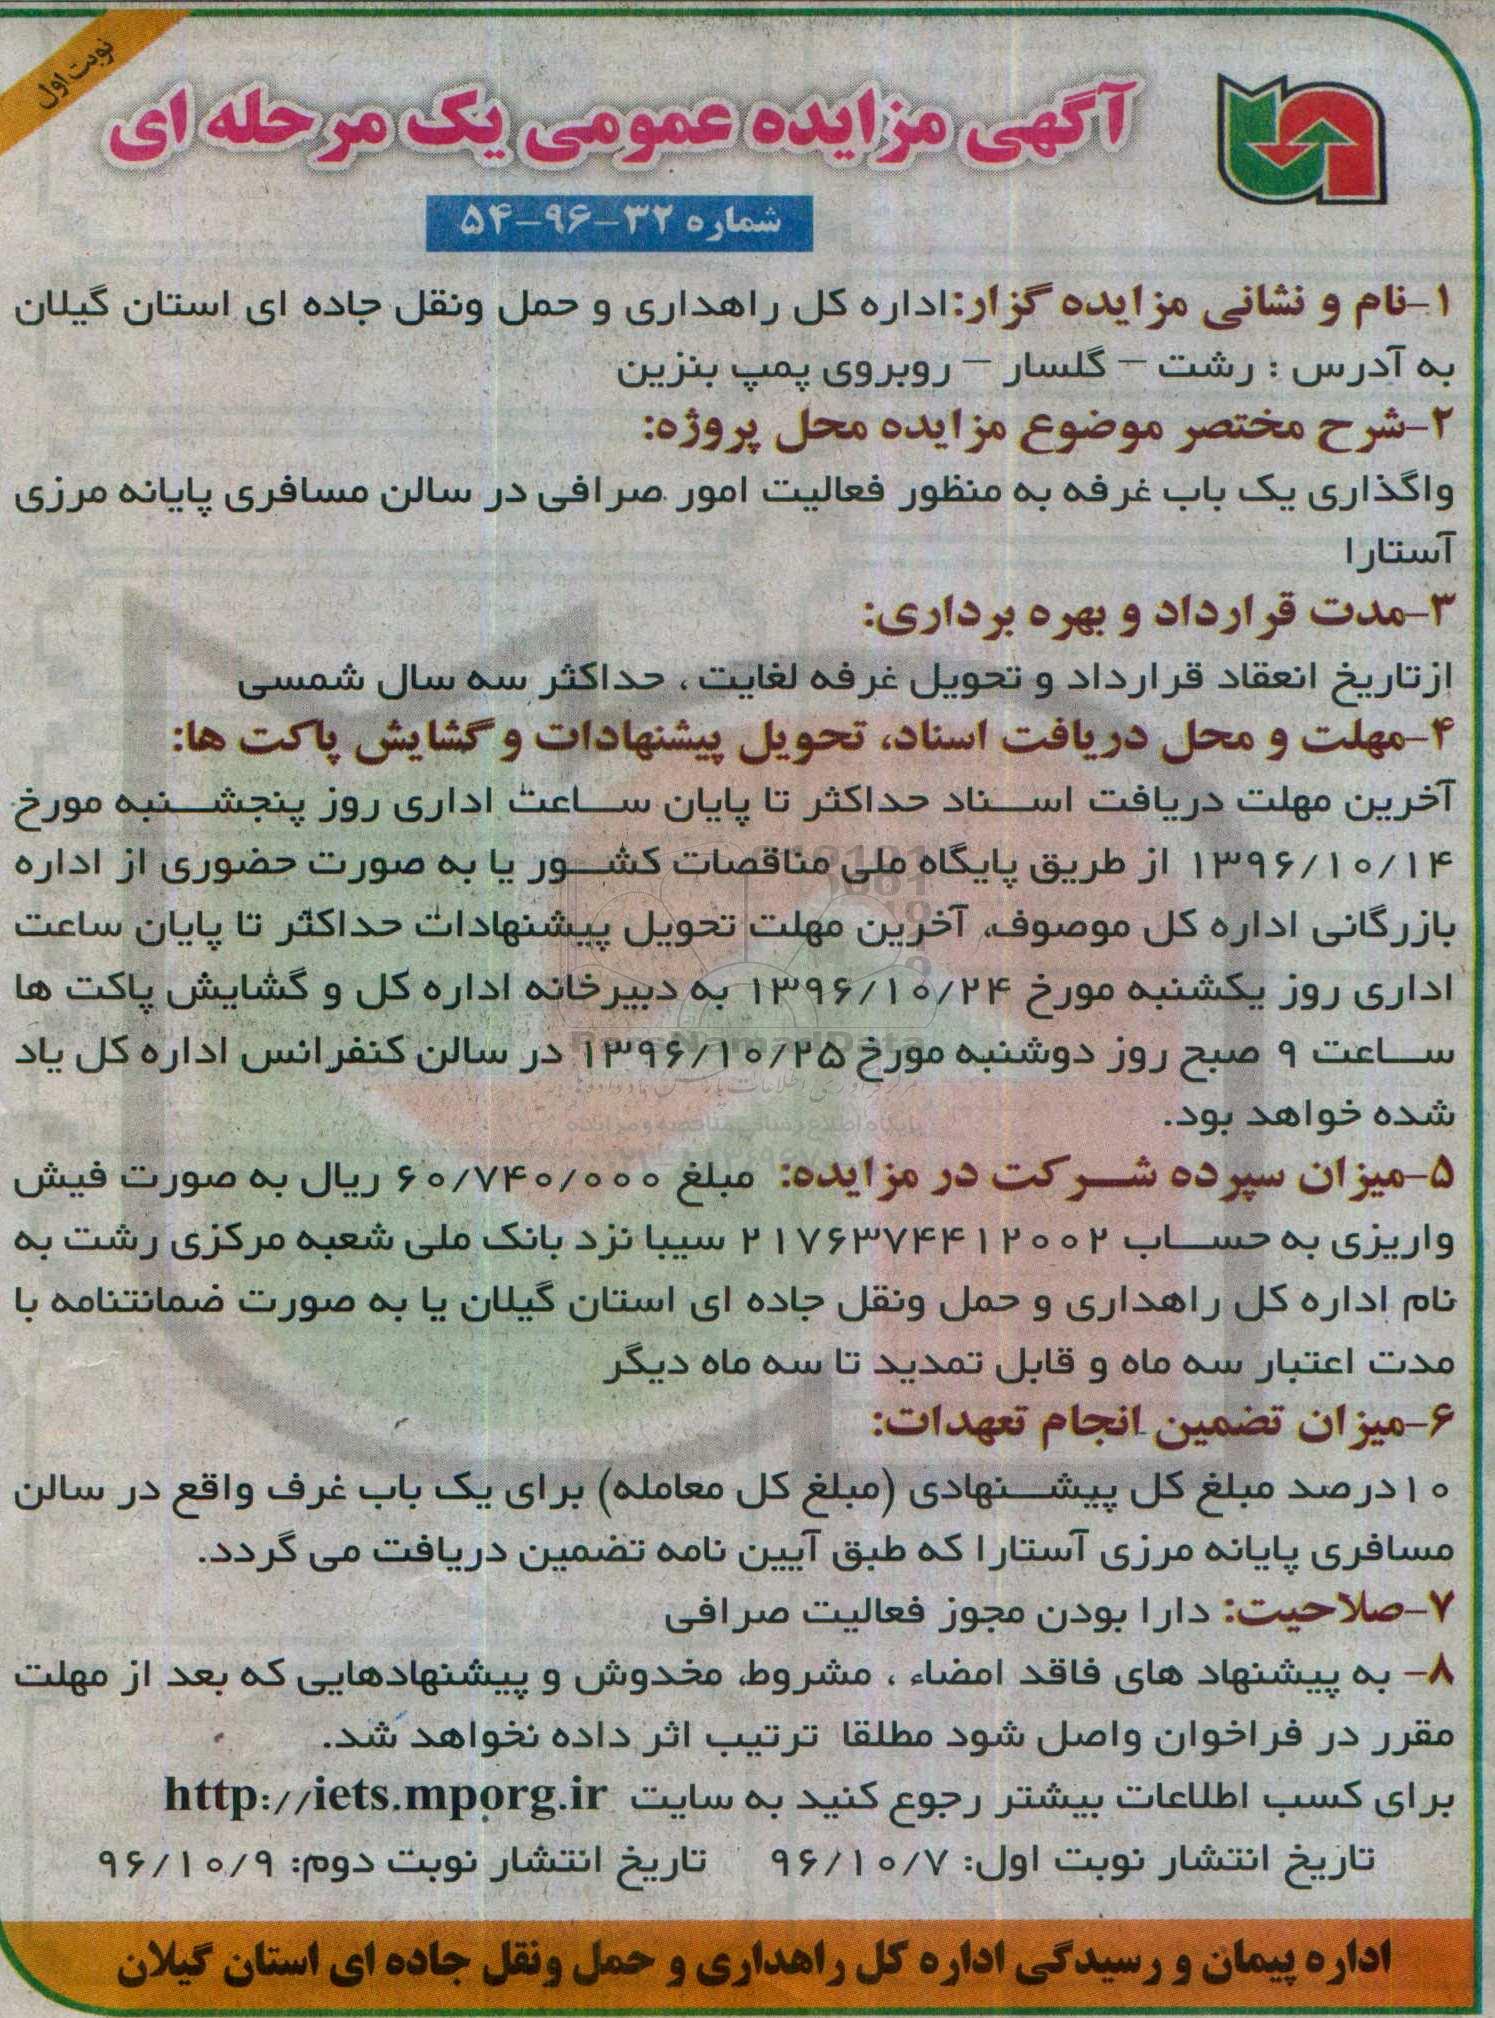 نوبت اول
آگهی مزایده عمومی یک مرحله ای
شماره ۳۲-۹۶-۵۴
۱-نام و نشانی مزایده گزار:اداره کل راهداری و حمل ونقل جاده ای استان گیلان
به آدرس : رشت – گلسار – روبروی پمپ بنزین
۲-شرح مختصر موضوع مزایده محل پروژه:
واگذاری یک باب غرفه به منظور فعالیت امور صرافی در سالن مسافری پایانه مرزی
آستارا
۳-مدت قرارداد و بهره برداری:
ازتاریخ انعقاد قرارداد و تحویل غرفه لغایت ، حداکثر سه سال شمسی
۴-مهلت و محل دریافت اسناد، تحویل پیشنهادات و گشایش پاکت ها:
آخرین مهلت دریافت اسناد حداکثر تا پایان ساعت اداری روز پنجشنبه مورخ
۱۳۹۶/۱۰/۱۴ از طریق پایگاه ملی مناقصات کشور یا به صورت حضوری از اداره
بازرگانی اداره کل موصوف، آخرین مهلت تحویل پیشنهادات حداکثر تا پایان ساعت
اداری روز یکشنبه مورخ ۱۳۹۶/۱۰/۲۴ به دبیرخانه اداره کل و گشایش پاکت ها
ساعت ۹ صبح روز دوشنبه مورخ ۱۳۹۶/۱۰/۲۵ در سالن کنفرانس اداره کل یاد
شده خواهد بود.
۵-میزان سپرده شرکت در مزایده: مبلغ ۶۰/۷۴۰/۰۰۰ ریال به صورت فیش
واریزی به حساب ۲۱۷۶۳۷۴۴۱۲۰۰۲ سیبا نزد بانک ملی شعبه مرکزی رشت به
نام اداره کل راهداری و حمل ونقل جاده ای استان گیلان یا به صورت ضمانتنامه با
مدت اعتبار سه ماه و قابل تمدید تا سه ماه دیگر
۶-میزان تضمین انجام تعهدات:
۱۰درصد مبلغ کل پیشنهادی (مبلغ کل معامله) برای یک باب غرف واقع در سالن
مسافری پایانه مرزی آستارا که طبق آیین نامه تضمین دریافت می گردد.
۷-صلاحیت: دارا بودن مجوز فعالیت صرافی
۸- به پیشنهاد های فاقد امضاء ، مشروط، مخدوش و پیشنهادهایی که بعد از مهلت
مقرر در فراخوان واصل شود مطلقا ترتیب اثر داده نخواهد شد.
برای کسب اطلاعات بیشتر رجوع کنید به سایت http://iets.mporg.ir
تاریخ انتشار نوبت اول: ۹۶/۱۰/۷ تاریخ انتشار نوبت دوم: ۹۶/۱۰/۹
اداره پیمان و رسیدگی اداره کل راهداری و حمل ونقل جاده ای استان گیلان